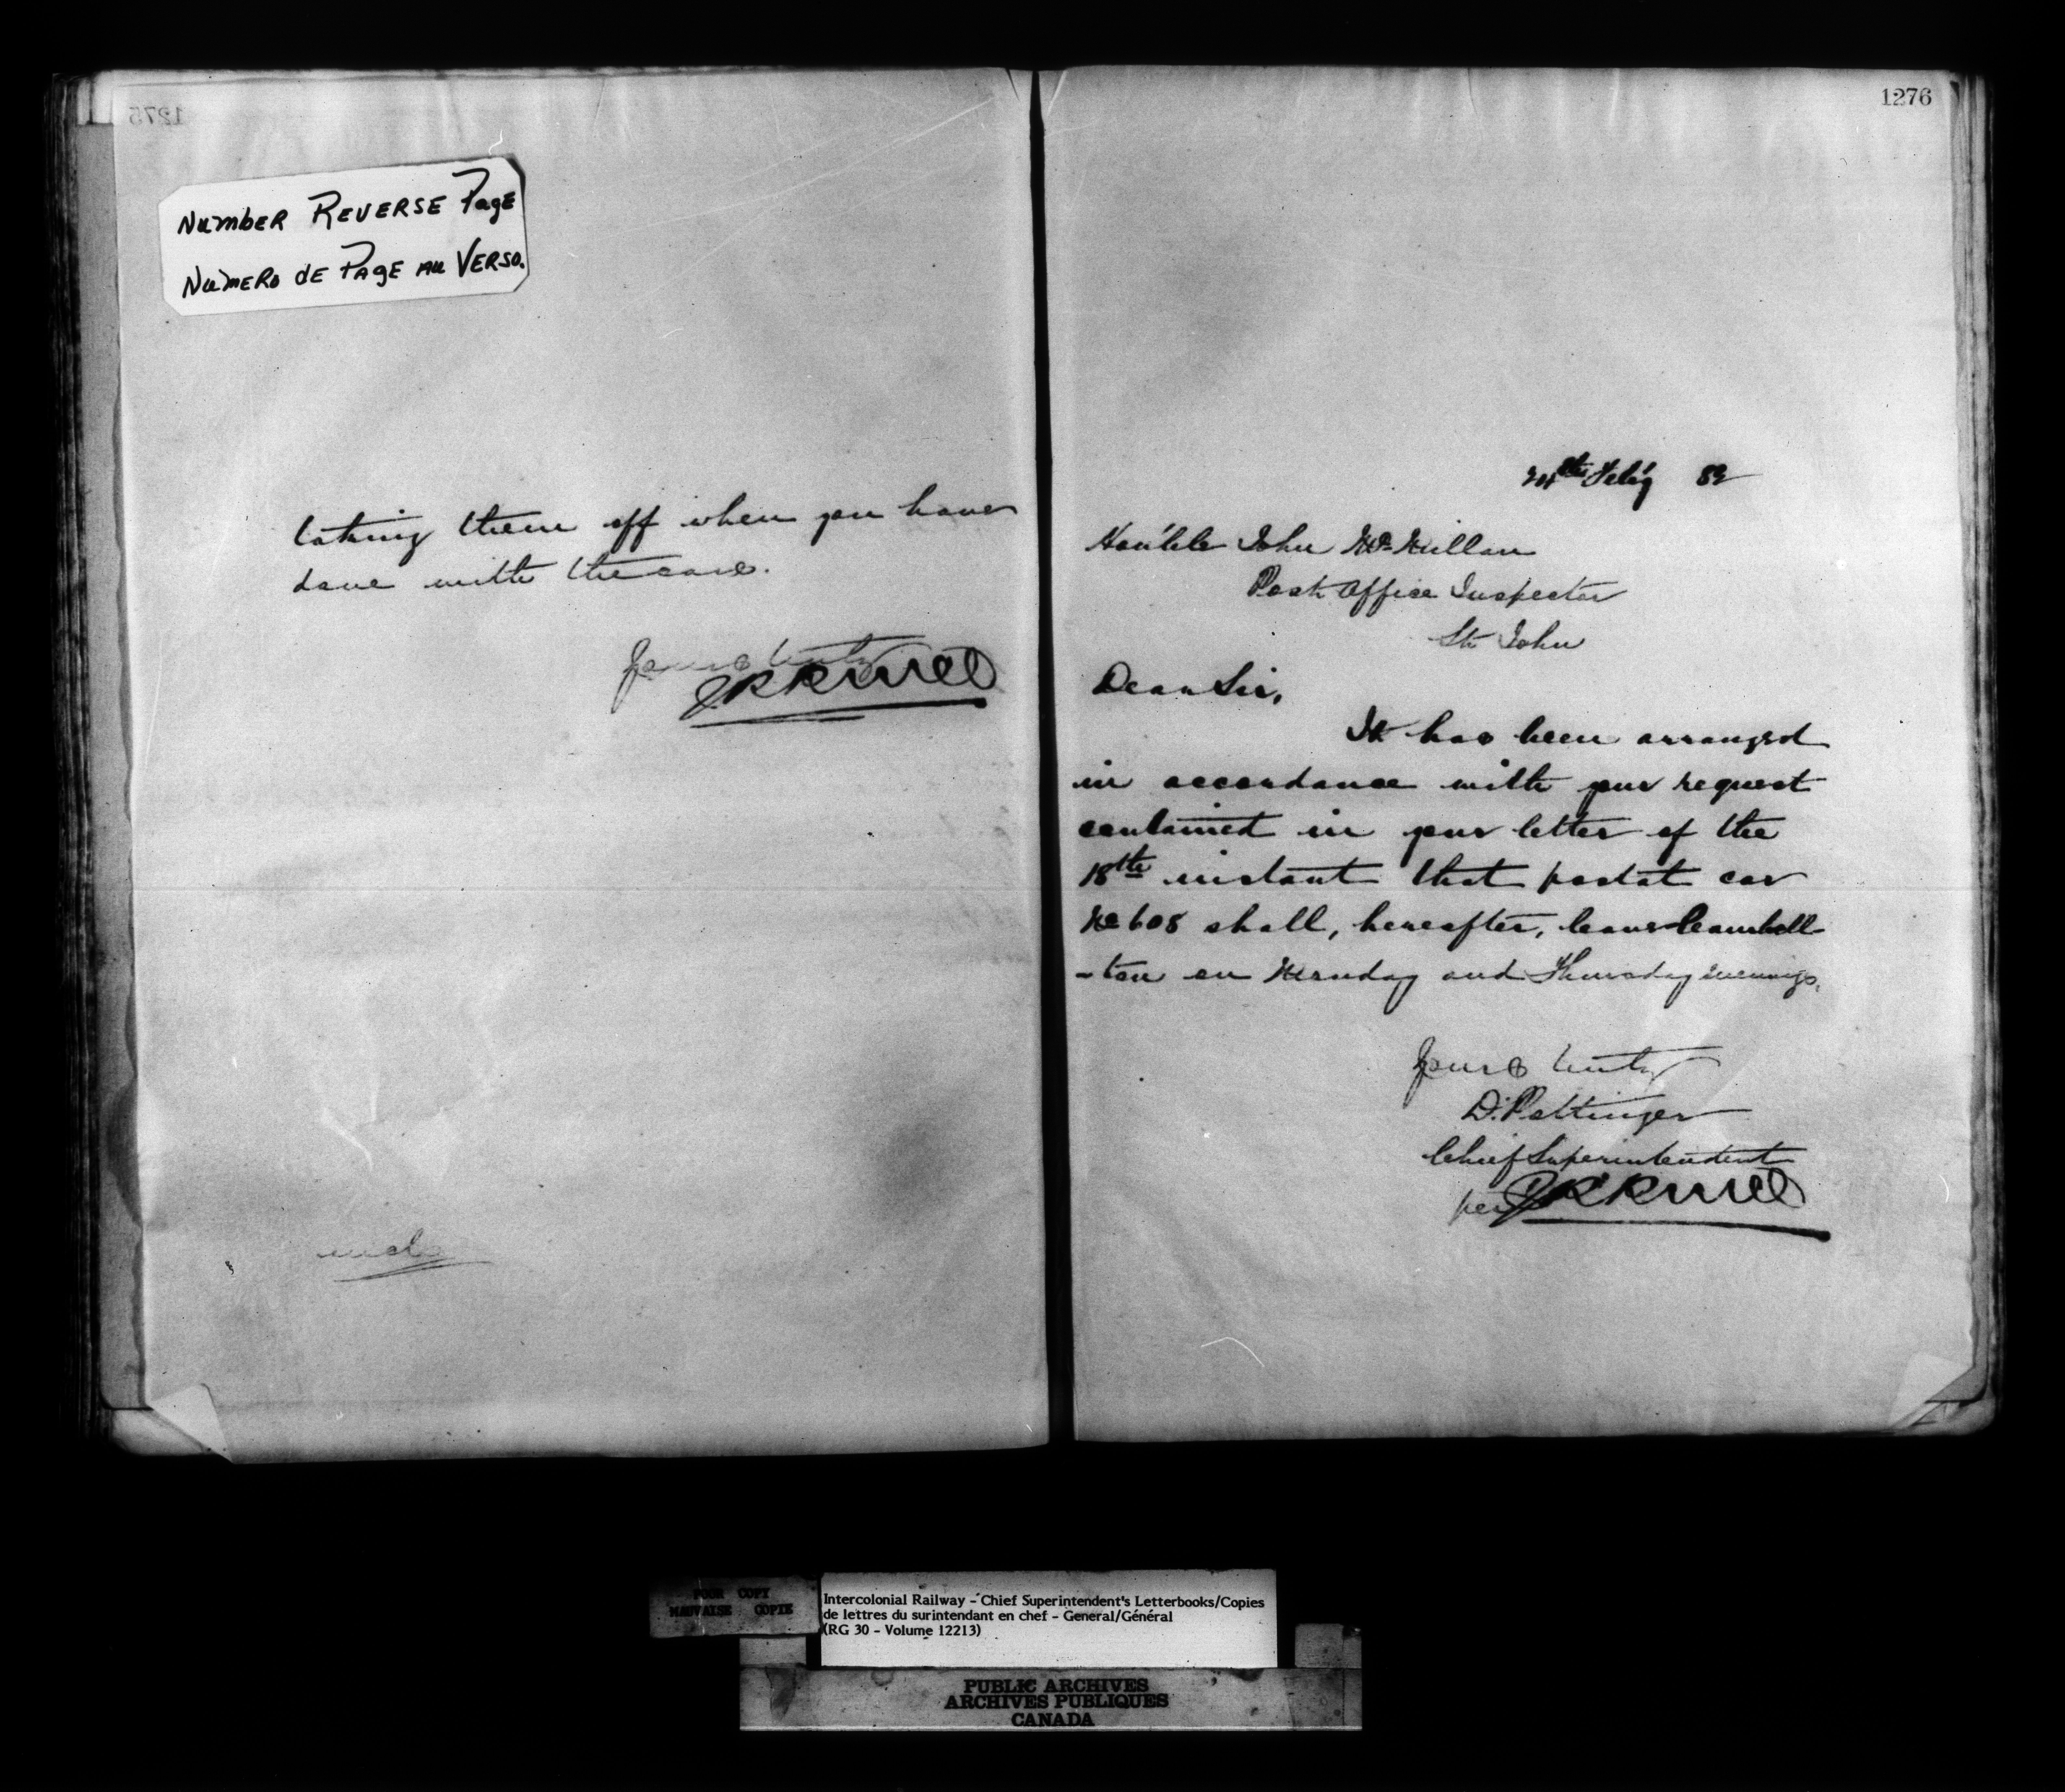 1275
Number Reverse Page
Numero de Page au Verso.
taking them off when you have
done with the cars.
Yours truly
1276
Feby 82
Hon'ble John McMillan
Post Office Inspector
St John
Dear Sir,
It has been arranged
in accordance with your request
contained in your letter of the
18th instant that postal car
No 608 shall, hereafter, leave Campbell-
-ton on Monday and Thursday evenings.
Yours truly
D. Pottinger
Chief Superintendent
per
POOR COPY
MAUVAISE COPIE
Intercolonial Railway - Chief Superintendent's Letterbooks/Copies
de lettres du surintendant en chef - General/Général
(RG 30 - Volume 12213)
PUBLIC ARCHIVES
ARCHIVES PUBLIQUES
CANADA